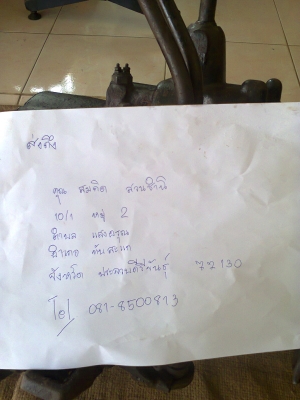 ส่งถึง
คุณ สมคิด
10/1 หมู่ 2
ตำบล แสงอรุณ
อำเภอ ทับสะแก
จังหวัด ประจวบคีรีขันธ์ 77130
Tel 081-8500813